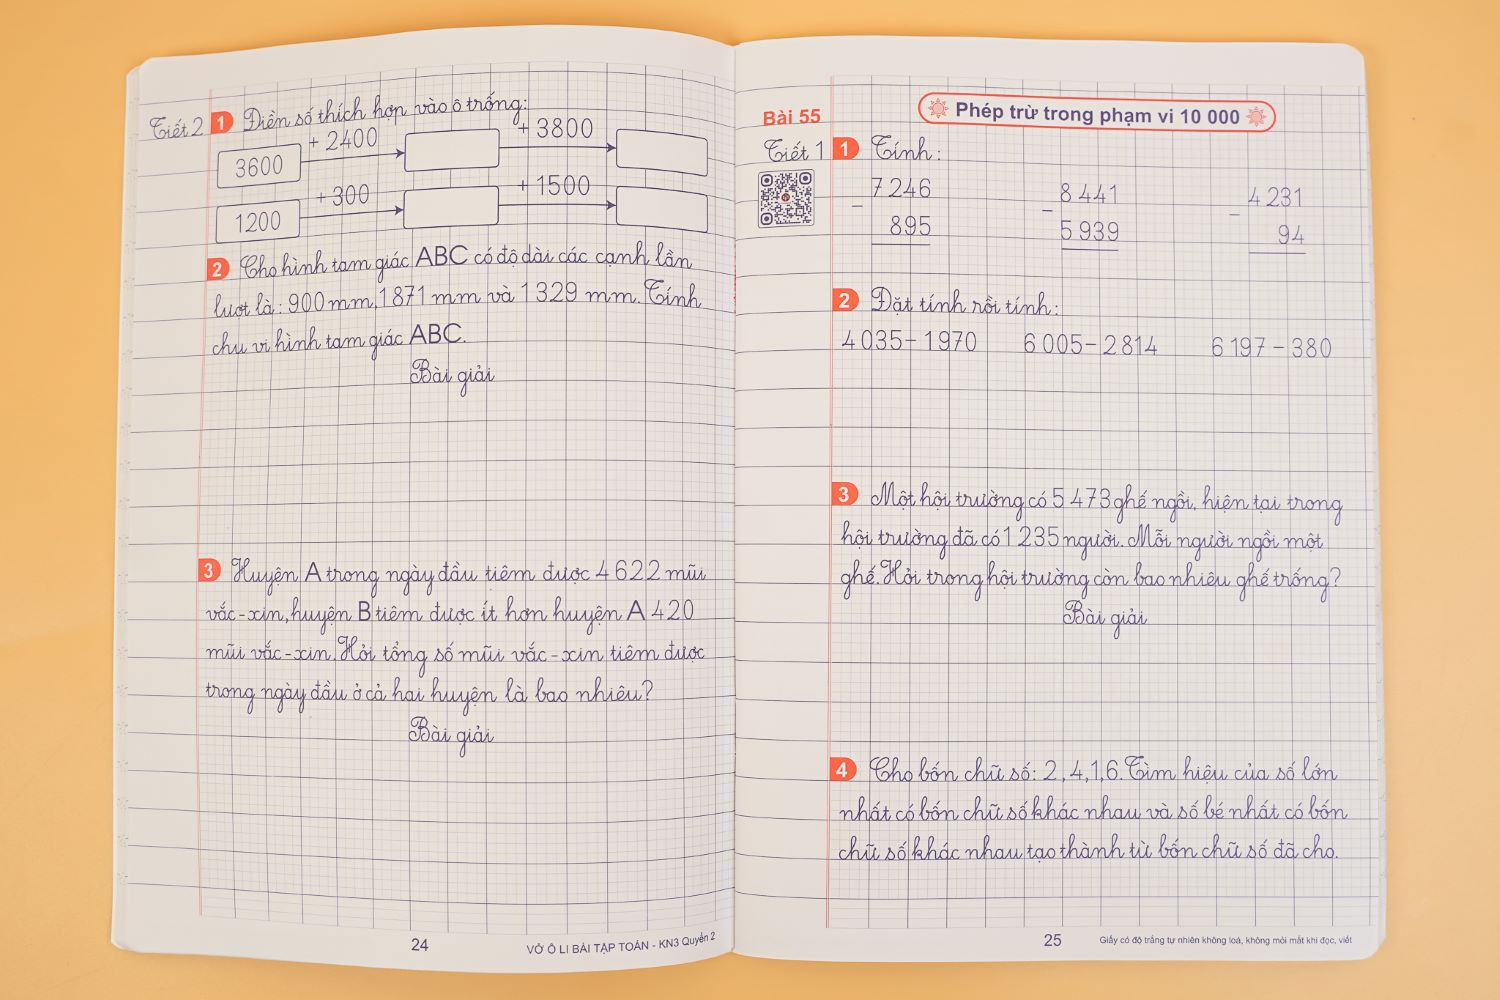 Tiết 2 1 Điền số thích hợp vào ô trống:
+ 2400 + 3800
3600
+ 300 + 1500
1200
2 Cho hình tam giác ABC có độ dài các cạnh lần
lượt là: 900 mm, 1 871 mm và 1 329 mm. Tính
chu vi hình tam giác ABC.
Bài giải
3 Huyện A trong ngày đầu tiêm được 4 622 mũi
vắc-xin, huyện B tiêm được ít hơn huyện A 420
mũi vắc-xin. Hỏi tổng số mũi vắc-xin tiêm được
trong ngày đầu ở cả hai huyện là bao nhiêu?
Bài giải
24 VỞ Ô LI BÀI TẬP TOÁN - KN3 Quyển 2
Bài 55 Phép trừ trong phạm vi 10 000
Tiết 1 1 Tính:
7 246 8 441 4 231
- - -
895 5 939 94
2 Đặt tính rồi tính:
4 035 - 1 970 6 005 - 2 814 6 197 - 380
3 Một hội trường có 5 473 ghế ngồi, hiện tại trong
hội trường đã có 1 235 người. Mỗi người ngồi một
ghế. Hỏi trong hội trường còn bao nhiêu ghế trống?
Bài giải
4 Cho bốn chữ số: 2, 4, 1, 6. Tìm hiệu của số lớn
nhất có bốn chữ số khác nhau và số bé nhất có bốn
chữ số khác nhau tạo thành từ bốn chữ số đã cho.
25 Giấy có độ trắng tự nhiên không loá, không mỏi mắt khi đọc, viết